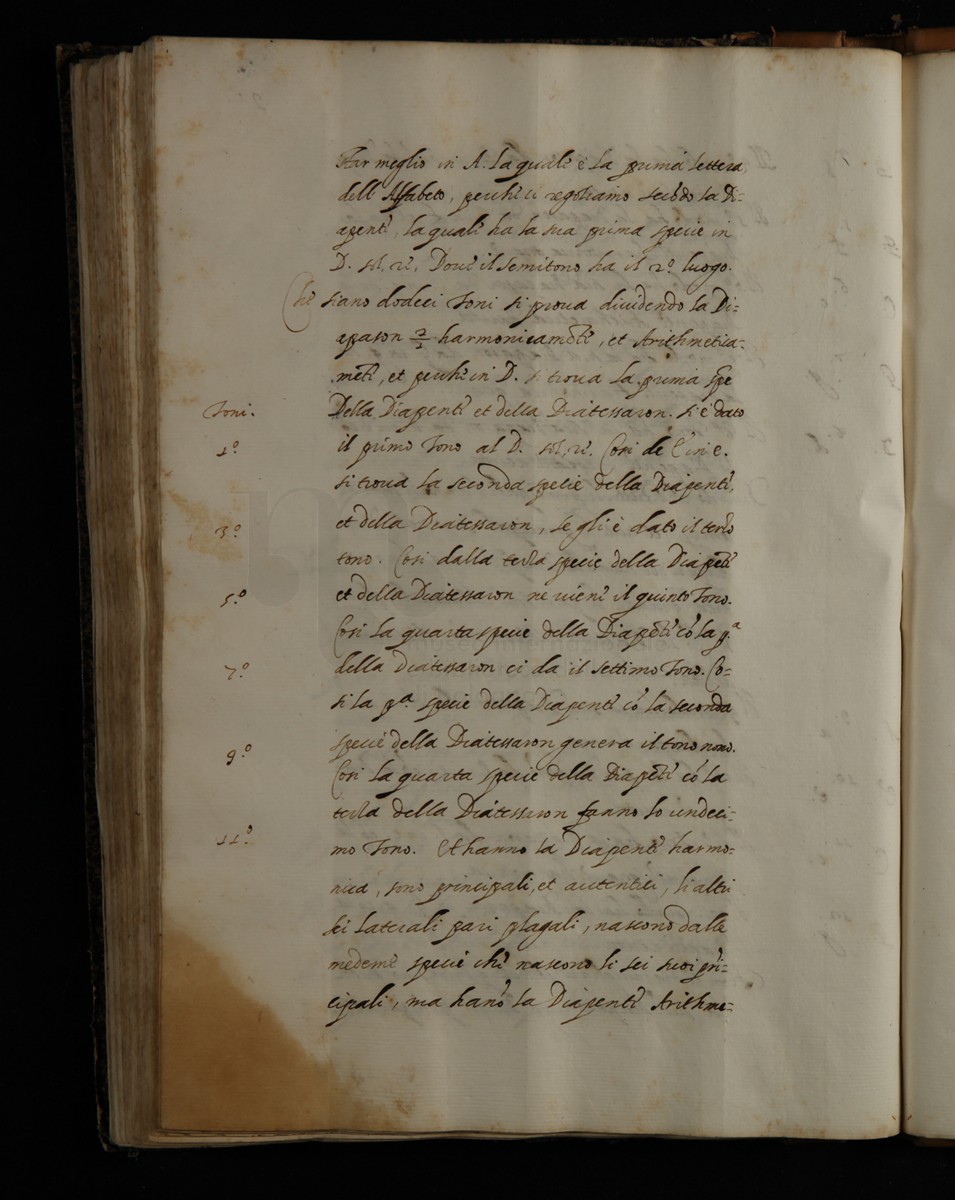 star meglio in A. la quale è la prima lettera
dell' Alfabeto, perche ci regoliamo secōdo la Di=
apente, la quale ha la sua prima specie in
D. sol, re, Dove il semitono ha il 2º luogo.
Che siano dodeci Toni si prova dividendo la Di=
apason 2/1 harmonicamēte, et Arithmetica=
mēte, et perche in D. si trova la prima spe
Toni. Della Diapente et della Diatessaron. si è dato
1º il primo Tono al D. sol, re. Cosi in e.
si trova la seconda specie della Diapente,
3º et della Diatessaron, se gli è dato il terzo
tono. Cosi dalla terza specie della Diapēte
5º et della Diatessaron ne viene il quinto Tono.
Cosi la quarta specie della Diapēte cō la pª
7º della Diatessaron ci da il settimo Tono. Co=
si la pª specie della Diapente cō la seconda
9º specie della Diatessaron genera il tono nono.
Cosi la quarta specie della Diapēte cō la
terza della Diatessaron fanno lo undeci=
11º mo Tono. Et hanno la Diapente harmo=
nica, sono principali, et autentici, li altri
sei laterali pari plagali, nascono dalle
medeme specie che nascono li sei suoi prī=
cipali, ma hanō la Diapente Arithme=